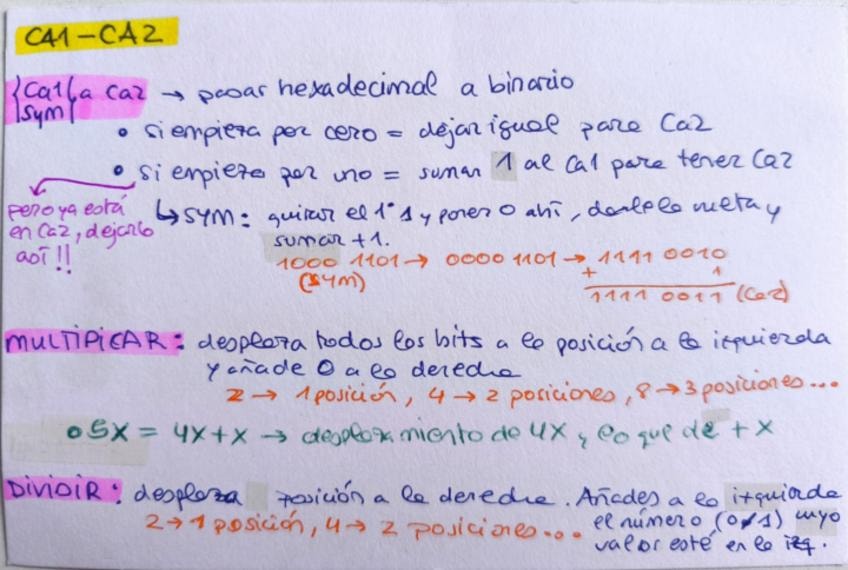 CA1-CA2
{Ca1 Sym} a Ca2 → pasar hexadecimal a binario
• si empieza por cero = dejar igual para Ca2
• si empieza por uno = sumar 1 al Ca1 para tener Ca2
pero ya está
en Ca2, dejarlo
así!!
↳ SYM: quitar el 1º 1 y poner 0 ahí, darle la vuelta y
sumar +1.
1000 1101 → 0000 1101 → 1111 0010
(SYM)
+ 1
1111 0011 (Ca2)
MULTIPICAR: desplaza todos los bits a la posición a la izquierda
y añade 0 a la derecha
2 → 1 posición, 4 → 2 posiciones, 8 → 3 posiciones...
• 5X = 4X + X → desplazamiento de 4X y lo que dé + X
DIVIDIR: desplaza posición a la derecha. Añades a la izquierda
2 → 1 posición, 4 → 2 posiciones...
el número (0/1) cuyo
valor esté en la izq.